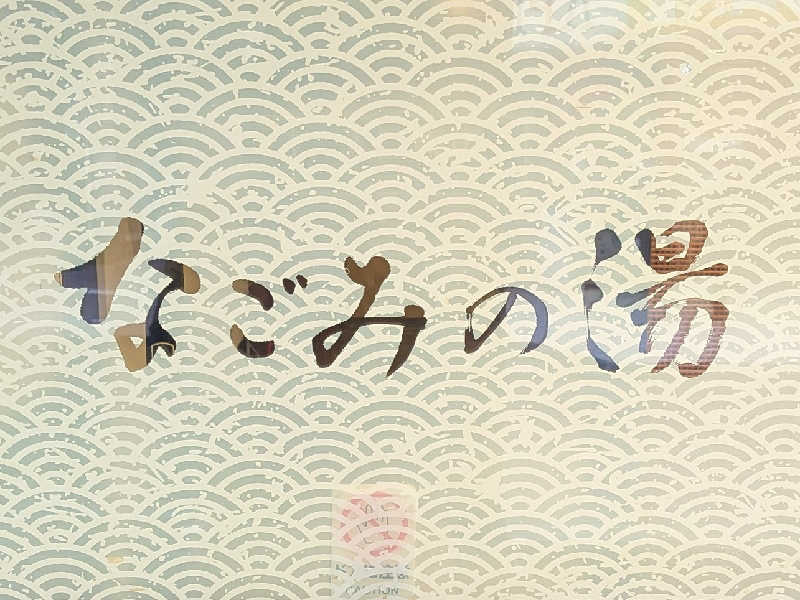 なごみの湯